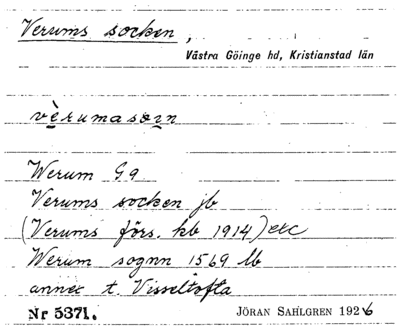 Verums socken,
Västra Göinge hd, Kristianstad län
vèrumasoɿn
Werum G9
Verums socken jb
(Verums förs. kb 1914) etc
Werum sognn 1569 lb
annex t. Visseltofta
Nr 5371. JÖRAN SAHLGREN 1926